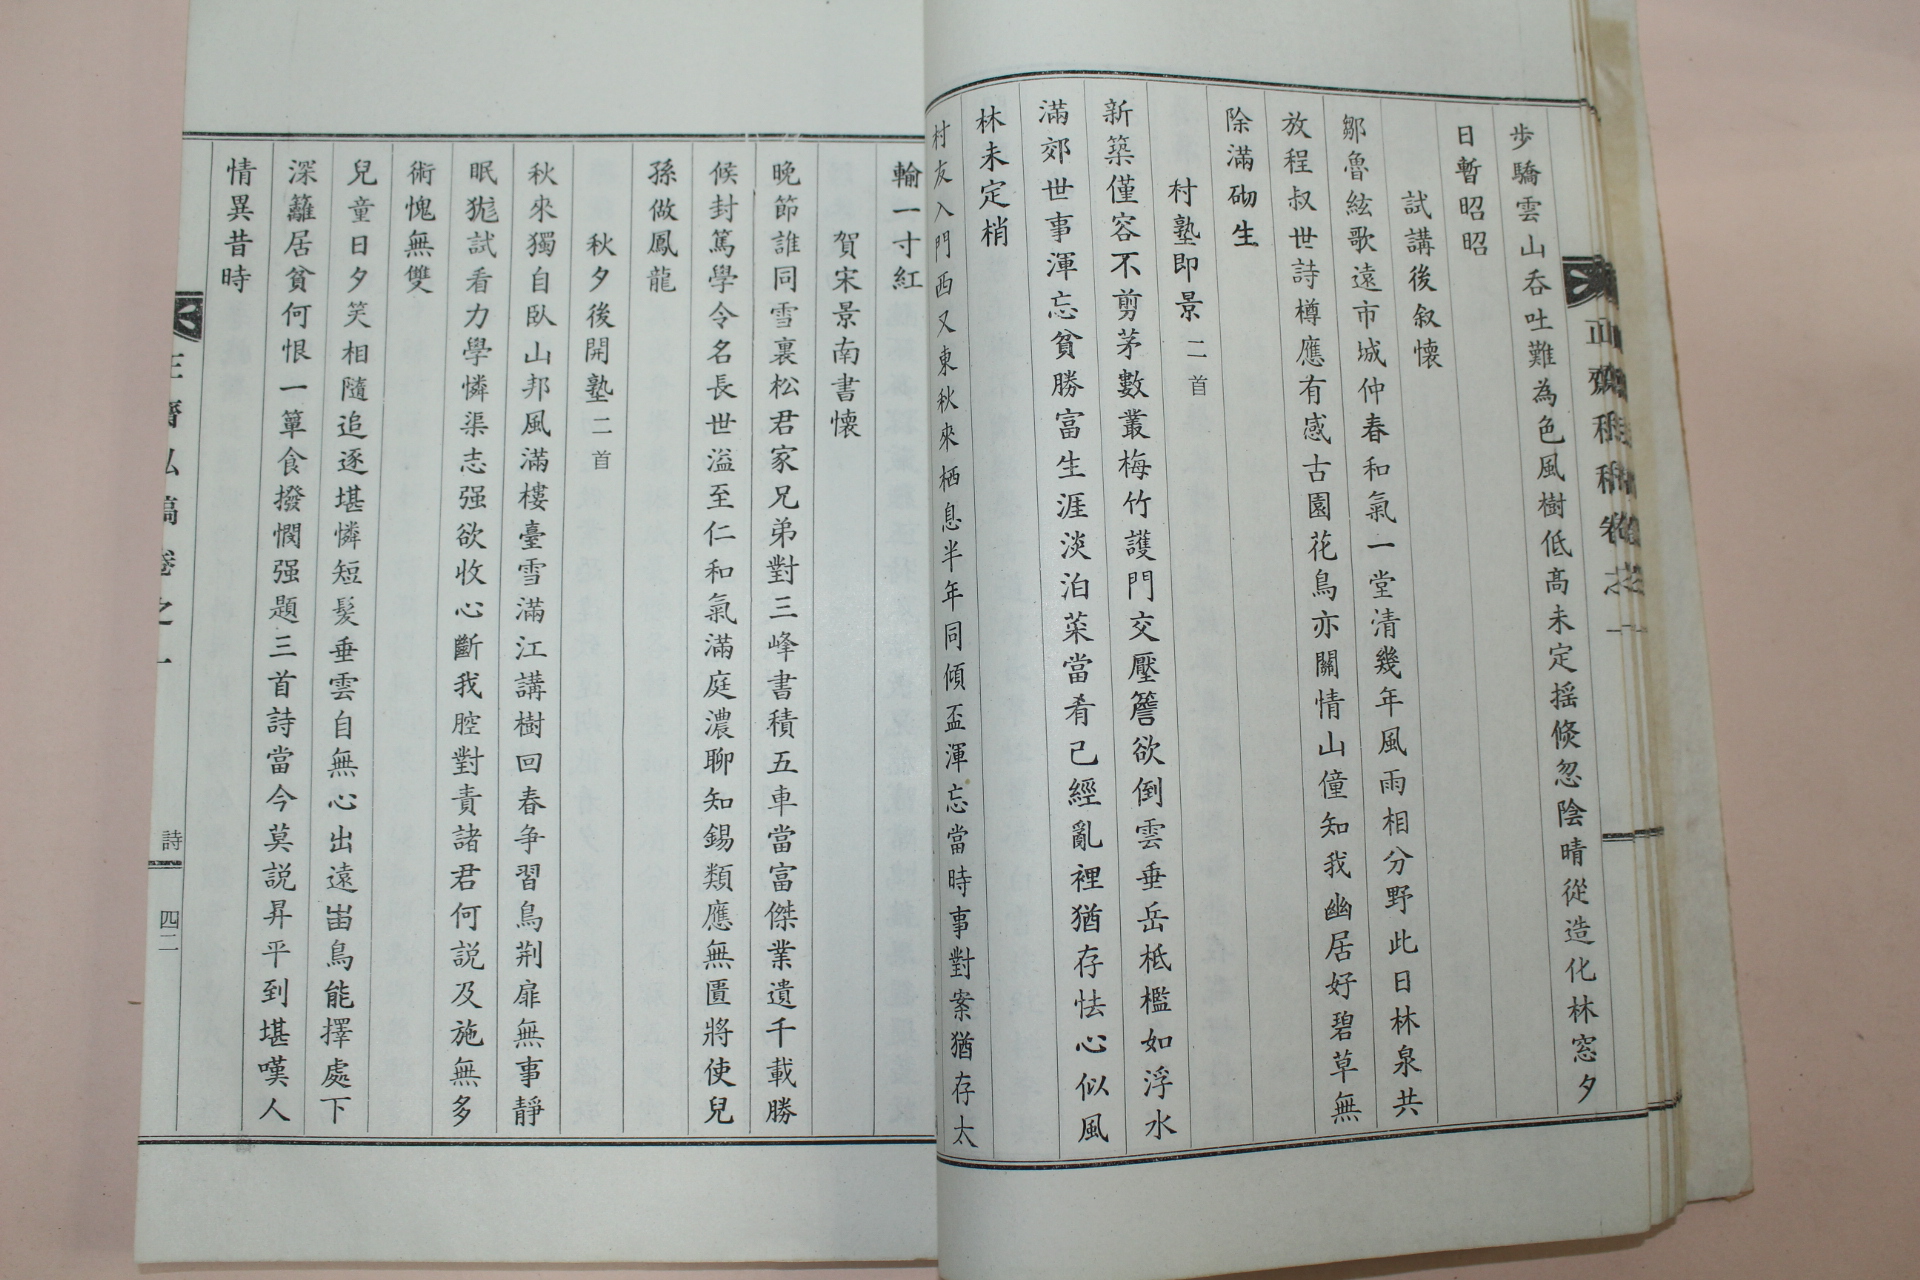 步驕雲山呑吐難為色風樹低高未定搖倏忽陰晴從造化林窓夕
日暫昭昭
試講後叙懷
鄒魯絃歌遠市城仲春和氣一堂清幾年風雨相分野此日林泉共
放程叔世詩樽應有感古園花鳥亦關情山僮知我幽居好碧草無
除滿砌生
村塾即景二首
新築僅容不剪茅數叢梅竹護門交壓簷欲倒雲垂岳柢檻如浮水
滿郊世事渾忘貧勝富生涯淡泊菜當肴已經亂裡猶存怯心似風
林未定梢
村友入門西又東秋來栖息半年同傾盃渾忘當時事對案猶存太
輸一寸紅
賀宋景南書懷
晚節誰同雪裏松君家兄弟對三峰書積五車當富傑業遺千載勝
候封篤學令名長世溢至仁和氣滿庭濃聊知錫類應無匱將使兒
孫做鳳龍
秋夕後開塾二首
秋來獨自臥山邦風滿樓臺雪滿江講樹回春爭習鳥荆扉無事靜
眠狵試看力學憐渠志强欲收心斷我腔對責諸君何説及施無多
術愧無雙
兒童日夕笑相隨追逐堪憐短髮垂雲自無心出遠峀鳥能擇處下
深籬居貧何恨一簞食撥憫强題三首詩當今莫説昇平到堪嘆人
情異昔時
詩
四二